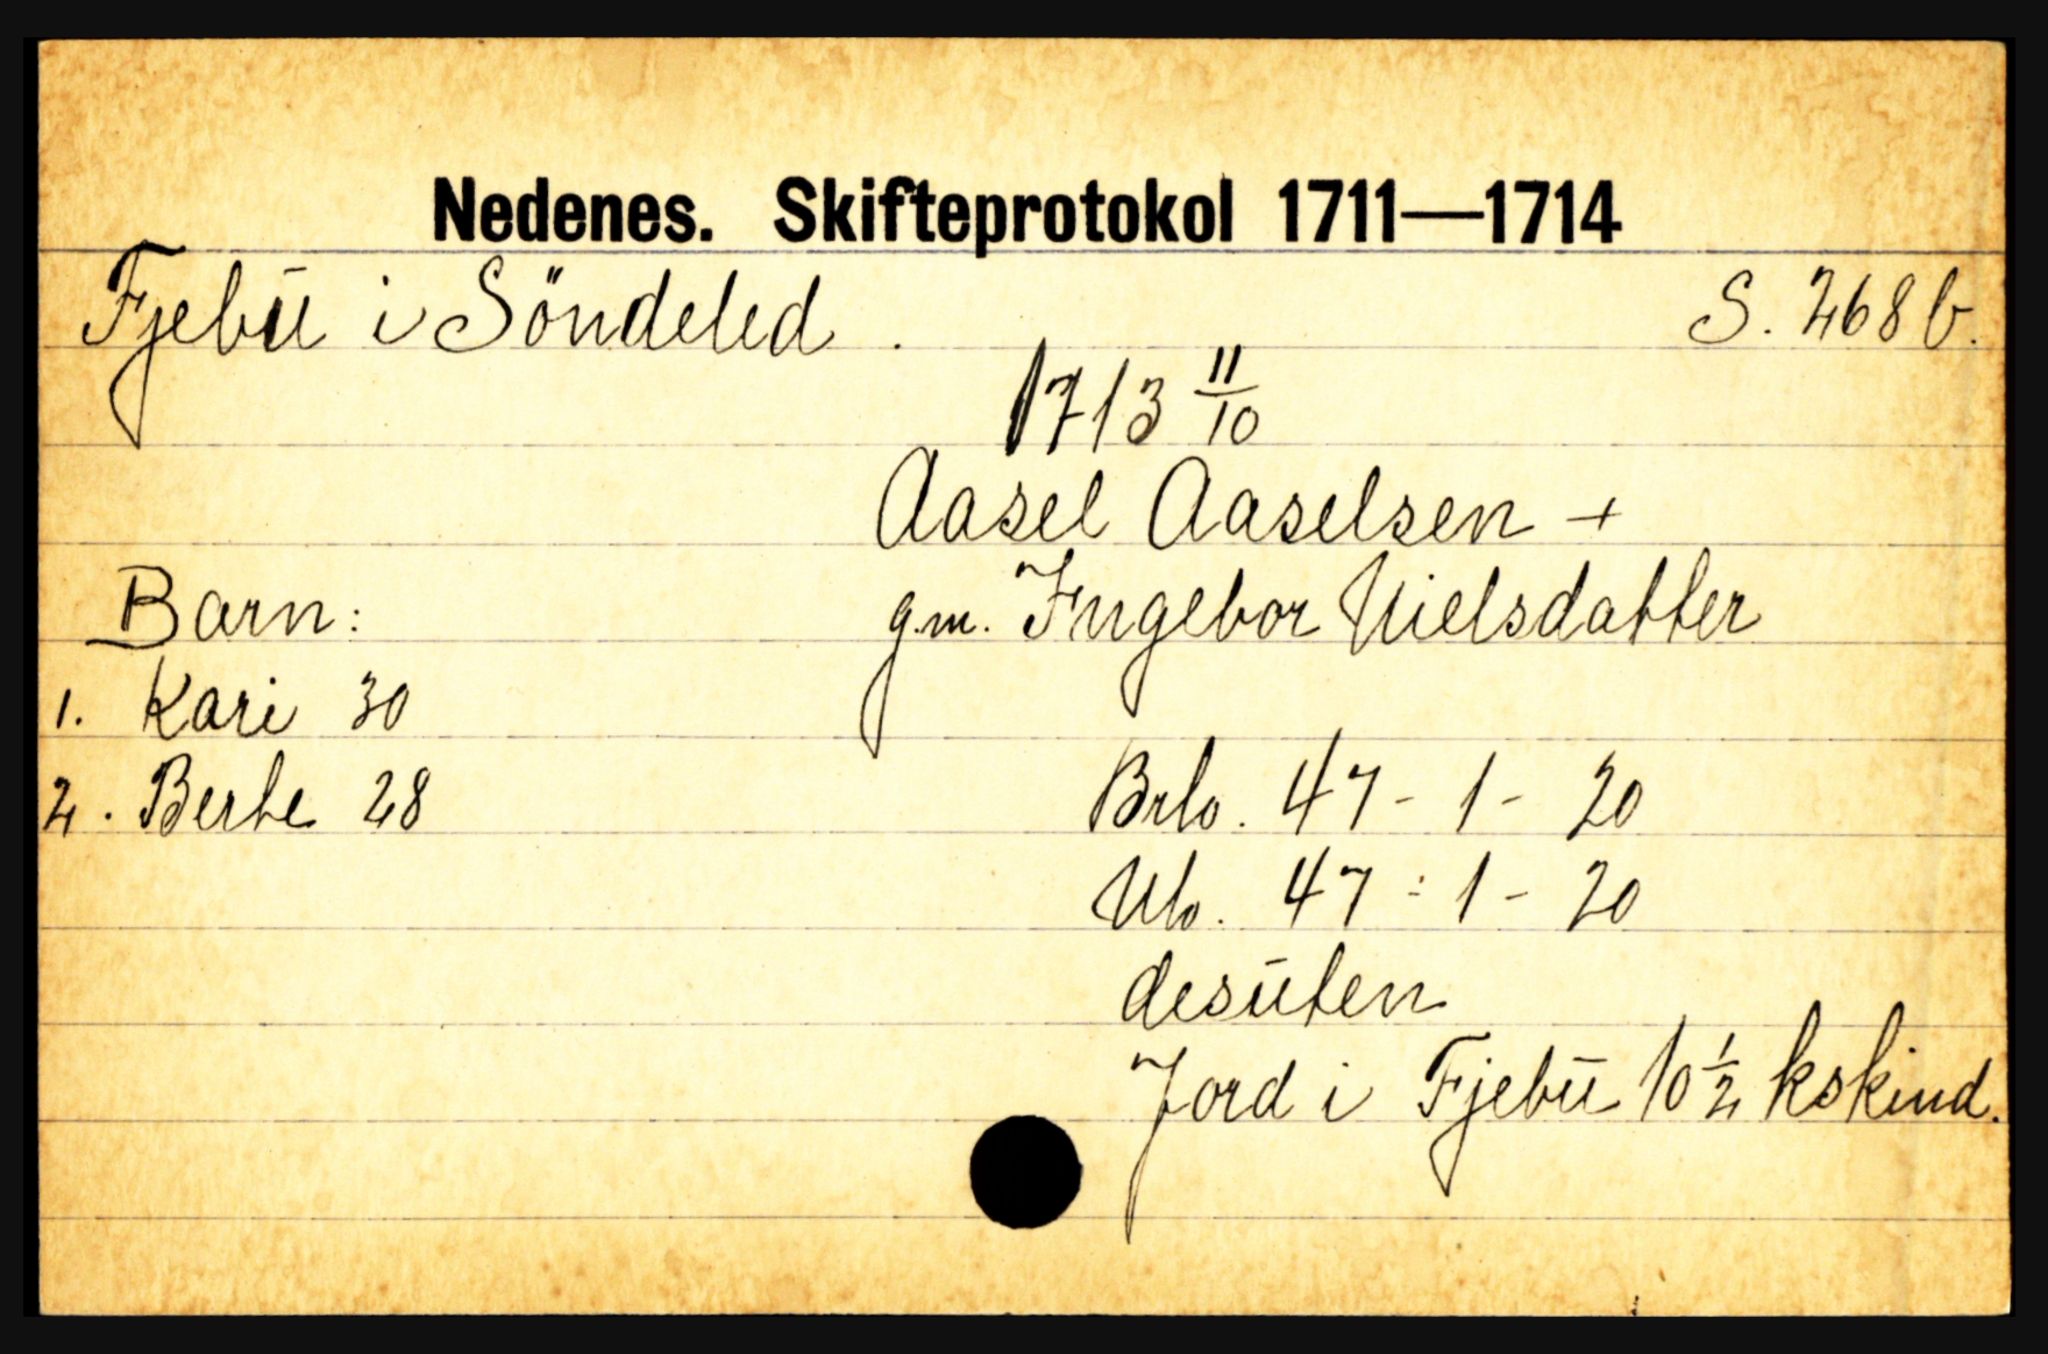 Nedenes. Skifteprotokol 1711—1714
Fjebū i Söndeled. S. 268 b.
1713 11/10
Aasel Aaselsen +
Barn: g.m. Ingebor Nielsdatter
1. Kari 30
2. Berte 28 Brto. 47 - 1 - 20
Nto. 47 - 1 - 20
desūten
Jord i Fjebū 10 1/2 kskind.